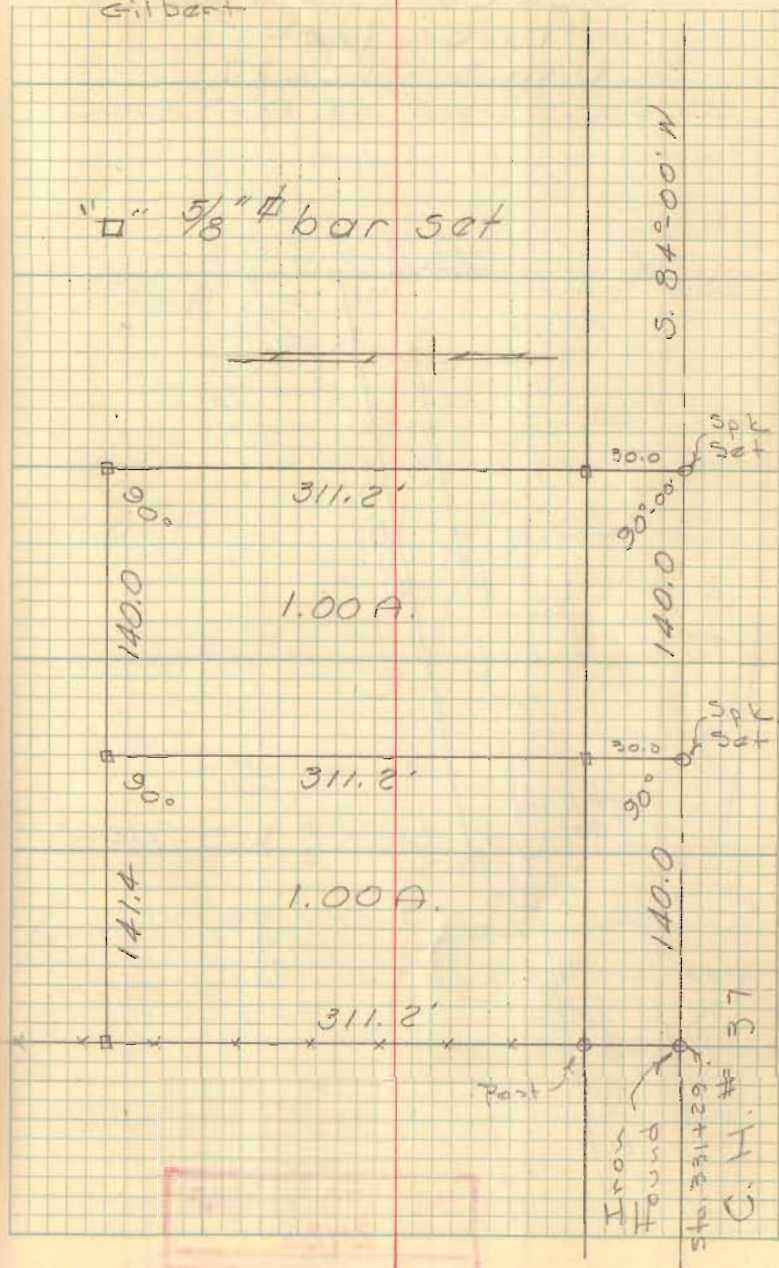 Gilbert
"□" 5/8" ⌀ bar set
S. 84°-00' W
Spk
Set
30.0
90°-00'
311.2'
90°
140.0
140.0
1.00 A.
Spk
Set
30.0
90°
311.2'
90°
141.4
140.0
1.00 A.
311.2'
Post
Iron
Found
Sta. 331+29
C. H. # 37